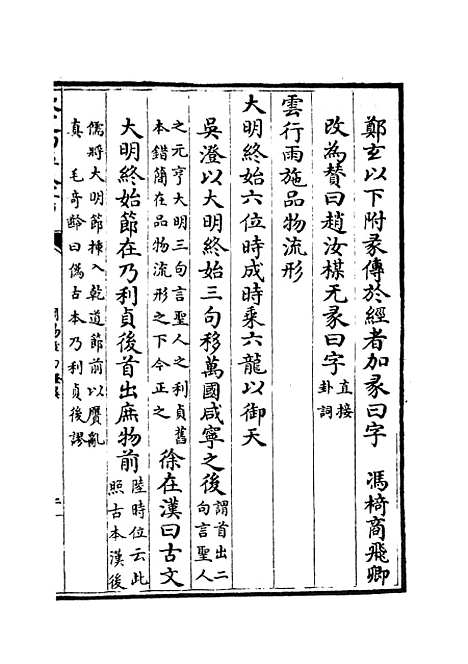 鄭玄以下附彖傳於經者加彖曰字　馮椅商飛卿
改為贊曰趙汝楳无彖曰字直接卦詞
雲行雨施品物流形
大明終始六位時成時乘六龍以御天
吳澄以大明終始三句移萬國咸寧之後謂首出二句言聖人
之元亨大明三句言聖人之利貞舊本錯簡在品物流形之下今正之　徐在漢曰古文
大明終始節在乃利貞後首出庶物前陸時位云此照古本漢後
儒將大明節揀入乾道節前以贗亂真　毛奇齡曰偽古本乃利貞後謬